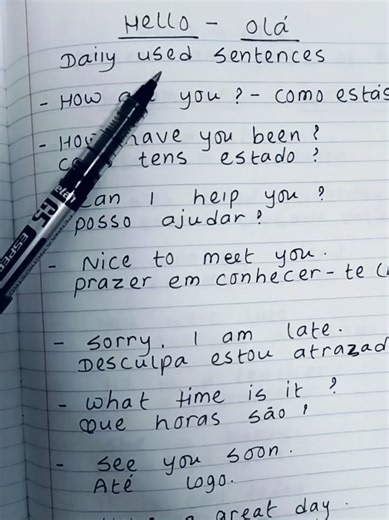 Hello - Olá
Daily used sentences
- How you? - como estás
- How have you been?
tens estado?
Can I help you?
posso ajudar?
- Nice to meet you.
prazer em conhecer-te (
- sorry. I am late.
Desculpa estou atrazad
- what time is it ?
Que horas são?
- see you soon.
Até logo.
a great day.